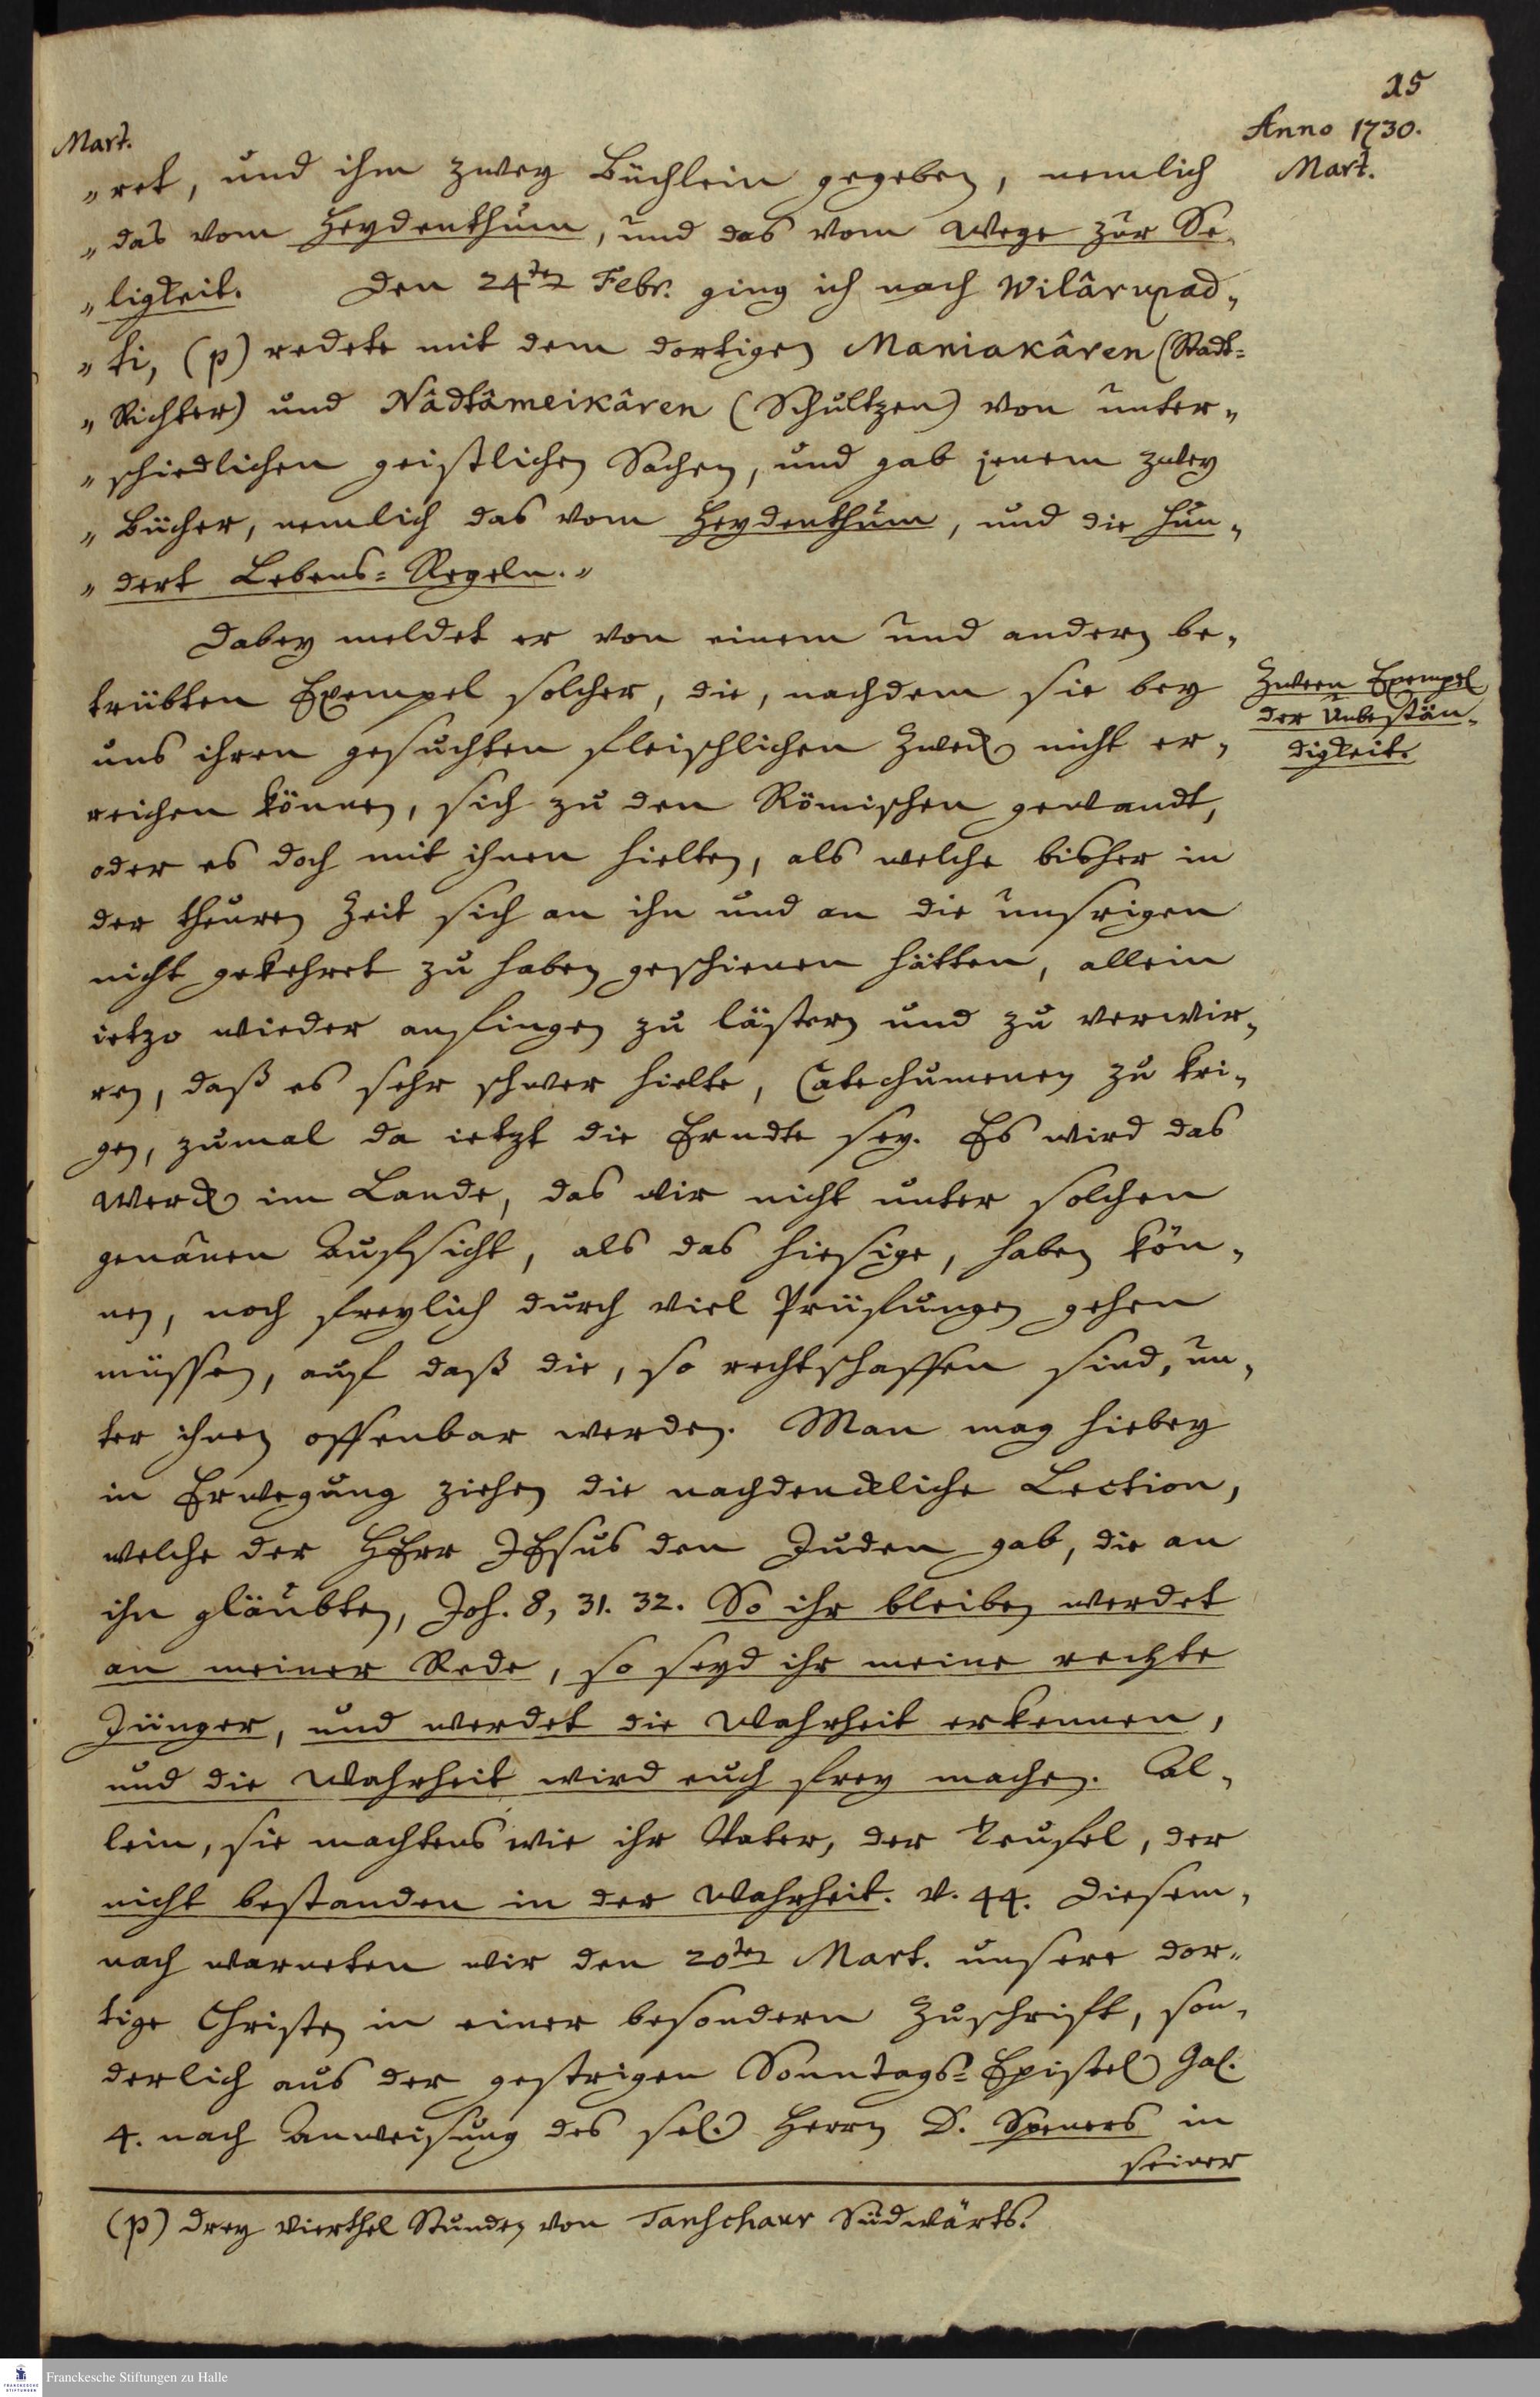 25
Anno 1730.
Mart.
Mart.
„ret, und ihm zwey Büchlein gegeben, nemlich
„das vom Heydenthum, und das vom Wege zur Se„
„ligkeit. Den 24ten Febr. ging ich nach Wilârupad„
„ti, (p) redete mit dem dortigen Maniakâren (Stadt=
„Richter) und Nâdtâmeikâren (Schultzen) von unter„
„schiedlichen geistlichen Sachen, und gab jenem zwey
„Bücher, nemlich das vom Heydenthum, und die hun„
„dert Lebens=Regeln.„
Dabey meldet er von einem und andern be„
trübten Exempel solcher, die, nachdem sie bey
uns ihren gesuchten fleischlichen Zweck nicht er„
reichen können, sich zu den Römischen gewandt,
oder es doch mit ihnen hielten, als welche bisher in
der theuren Zeit sich an ihn und an die unsrigen
nicht gekehret zu haben geschienen hätten, allein
ietzo wieder anfingen zu lästern und zu verwir„
ren, daß es sehr schwer hielte, Catechumenen zu kri„
gen, zumal da ietzt die Erndte sey. Es wird das
Werck im Lande, das wir nicht unter solchen
genauen Aufsicht, als das hiesige, haben kön„
nen, noch freylich durch viel Prüfungen gehen
müssen, auf daß die, so rechtschaffen sind, un„
ter ihnen offenbar werden. Man mag hiebey
in Erwegung ziehen die nachdenckliche Lection,
welche der HErr JEsus den Juden gab, die an
ihn gläubten, Joh. 8, 31. 32. So ihr bleiben werdet
an meiner Rede, so seyd ihr meine rechte
Jünger, und werdet die Wahrheit erkennen,
und die Wahrheit wird euch frey machen. Al„
lein, sie machtens wie ihr Vater, der Teufel, der
nicht bestanden in der Wahrheit. v. 44. Diesem„
nach warneten wir den 20ten Mart. unsere dor„
tige Christen in einer besondern Zuschrift, son„
derlich aus der gestrigen Sonntags=Epistel Gal.
4. nach Anweisung des sel. Herrn D. Speners in
seiner
Zween Exempel
der Unbestän„
digkeit.
(p) drey Vierthel Stunden von Tanschaur Südwärts.
Franckesche Stiftungen zu Halle